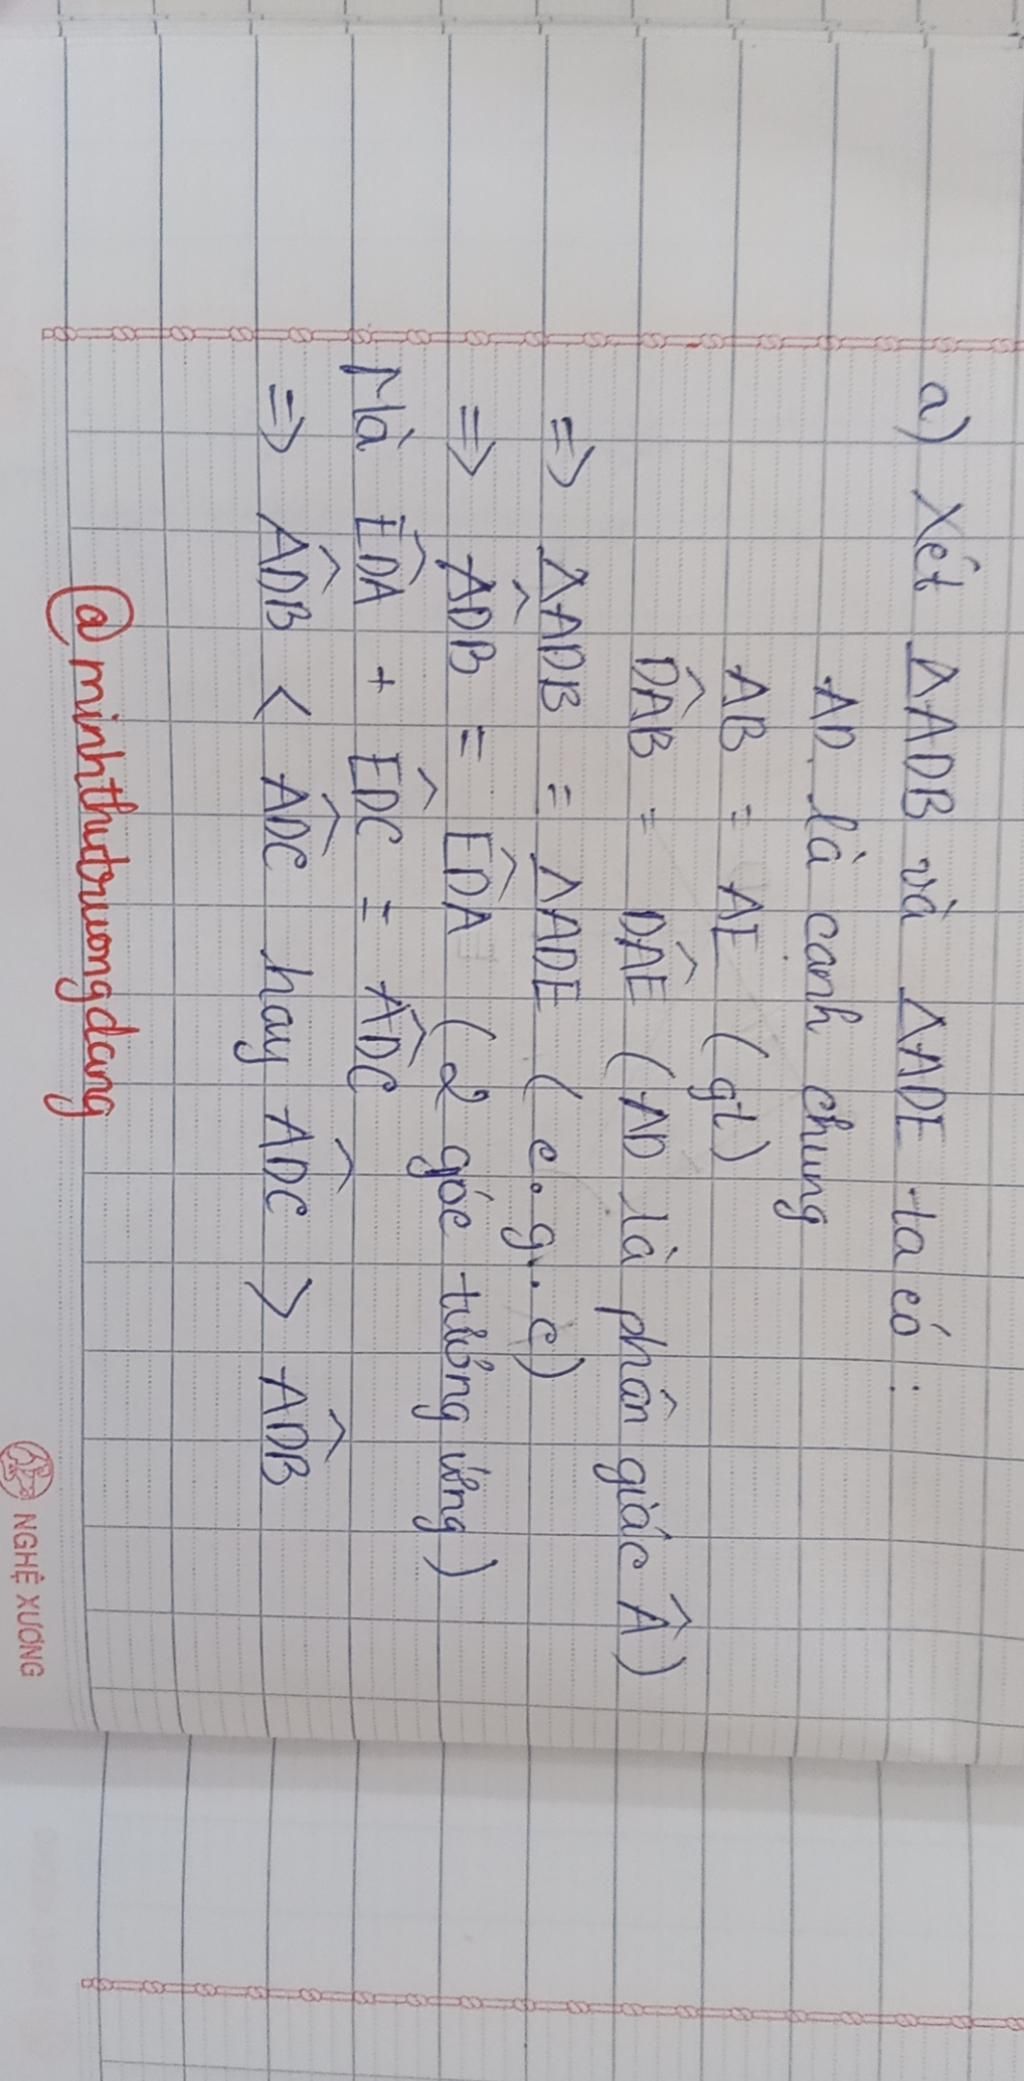 a) Xét ΔADB và ΔADE ta có:
AD là cạnh chung
AB = AE (gt)
D̂AB = D̂AE (AD là phân giác Â)
=> ΔADB = ΔADE (c.g.c)
=> ÂDB = ÊDA (2 góc tương ứng)
Mà ÊDA + ÊDC = ÂDC
=> ÂDB < ÂDC hay ÂDC > ÂDB
@minhthutruongdang
NGHỆ XƯƠNG